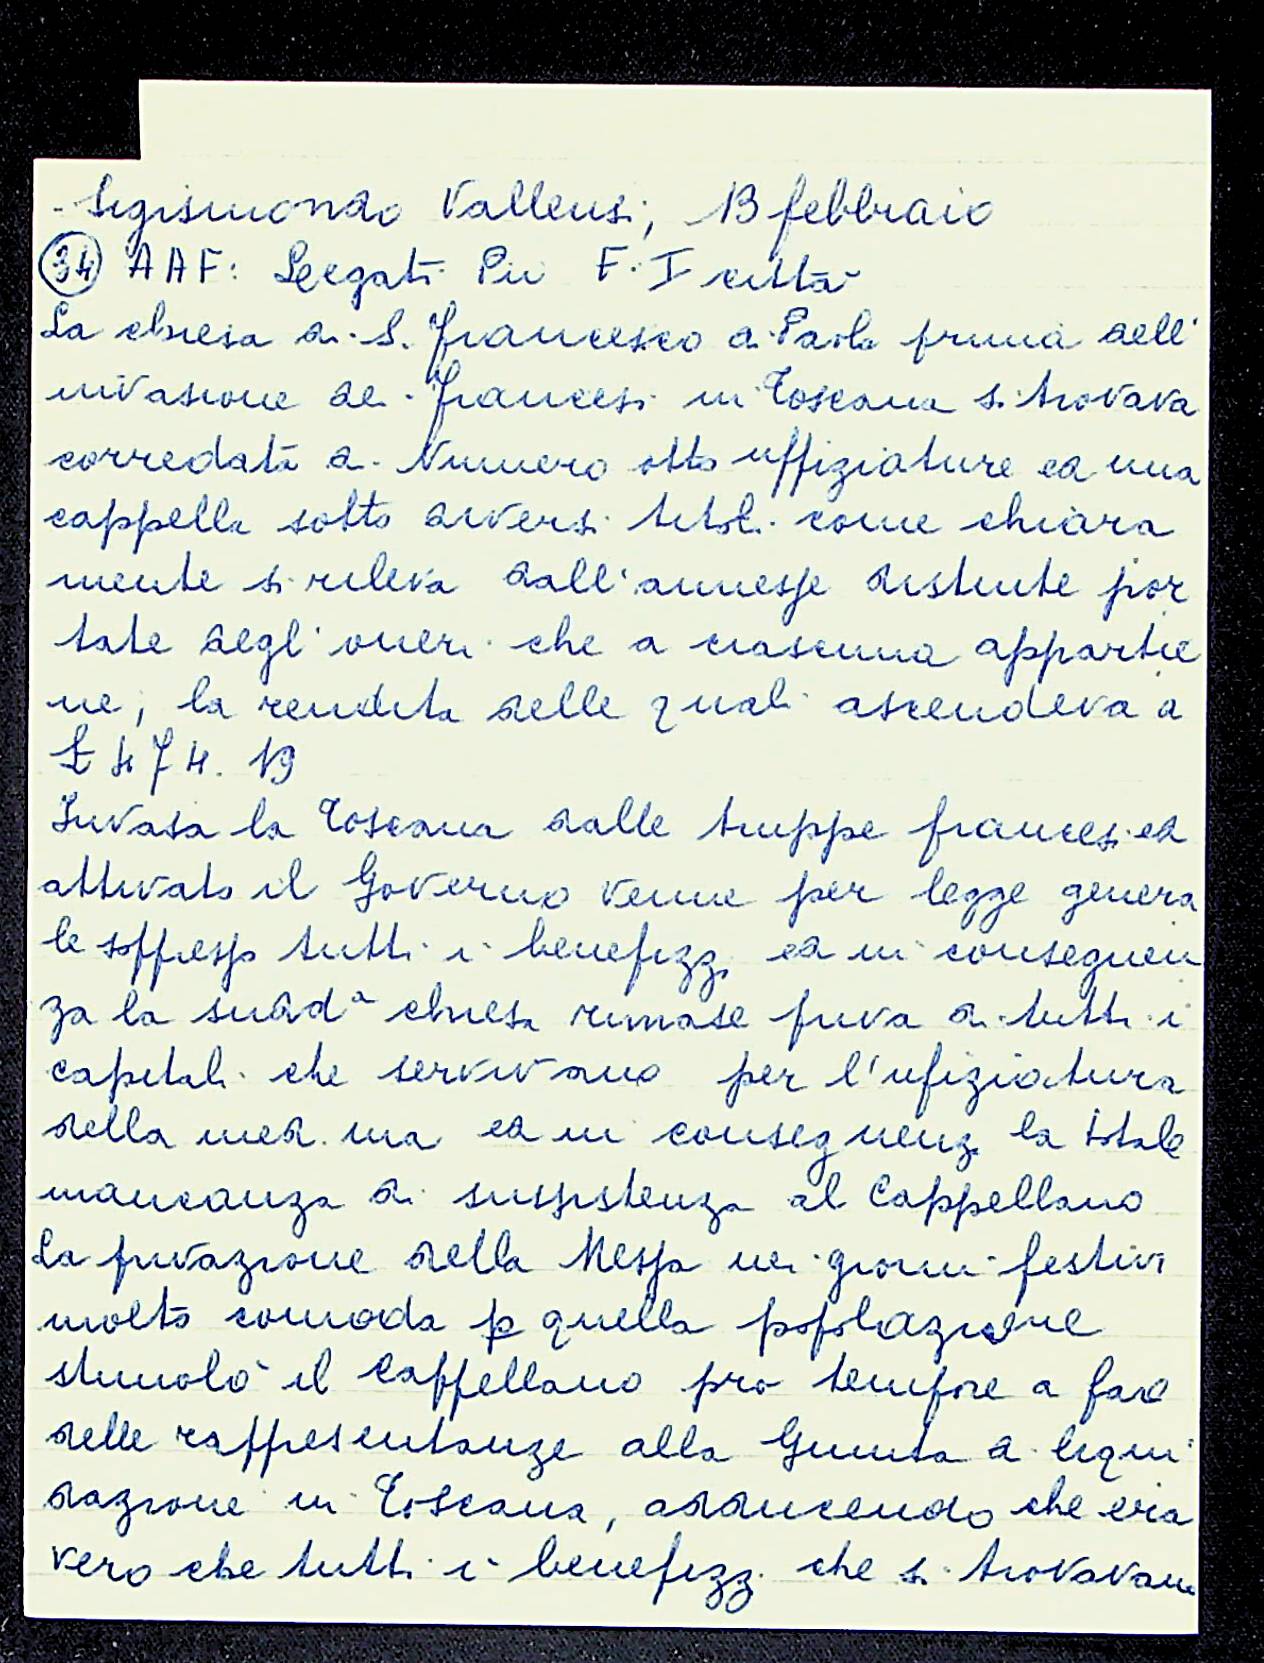 - Sigismondo Vallensi, 13 febbraio
34 AAF: Legati Pii F. I città
La chiesa di S. Francesco di Paola prima dell'
invasione dei Francesi in Toscana si trovava
corredata di Numero otto uffiziature ed una
cappella sotto diversi titoli come chiara
mente si rileva dall'annesse distinte por
tate degl'oneri che a ciascuna appartie
ne, la rendita delle quali ascendeva a
£ 474. 19
Invasa la Toscana dalle truppe francesi ed
attivato il Governo venne per legge genera
le soppresso tutti i benefizzi ed in conseguen
za la sudd.a chiesa rimase priva di tutti i
capitali che servivano per l'ufiziatura
della med.ma ed in conseguenz la totale
mancanza di sussistenza al Cappellano
La privazione della Messa nei giorni festivi
molto comoda p quella popolazione
stimolò il Cappellano pro tempore a fare
delle rappresentanze alla Giunta di liqui
dazione in Toscana, adducendo che era
vero che tutti i benefizzi che si trovavano